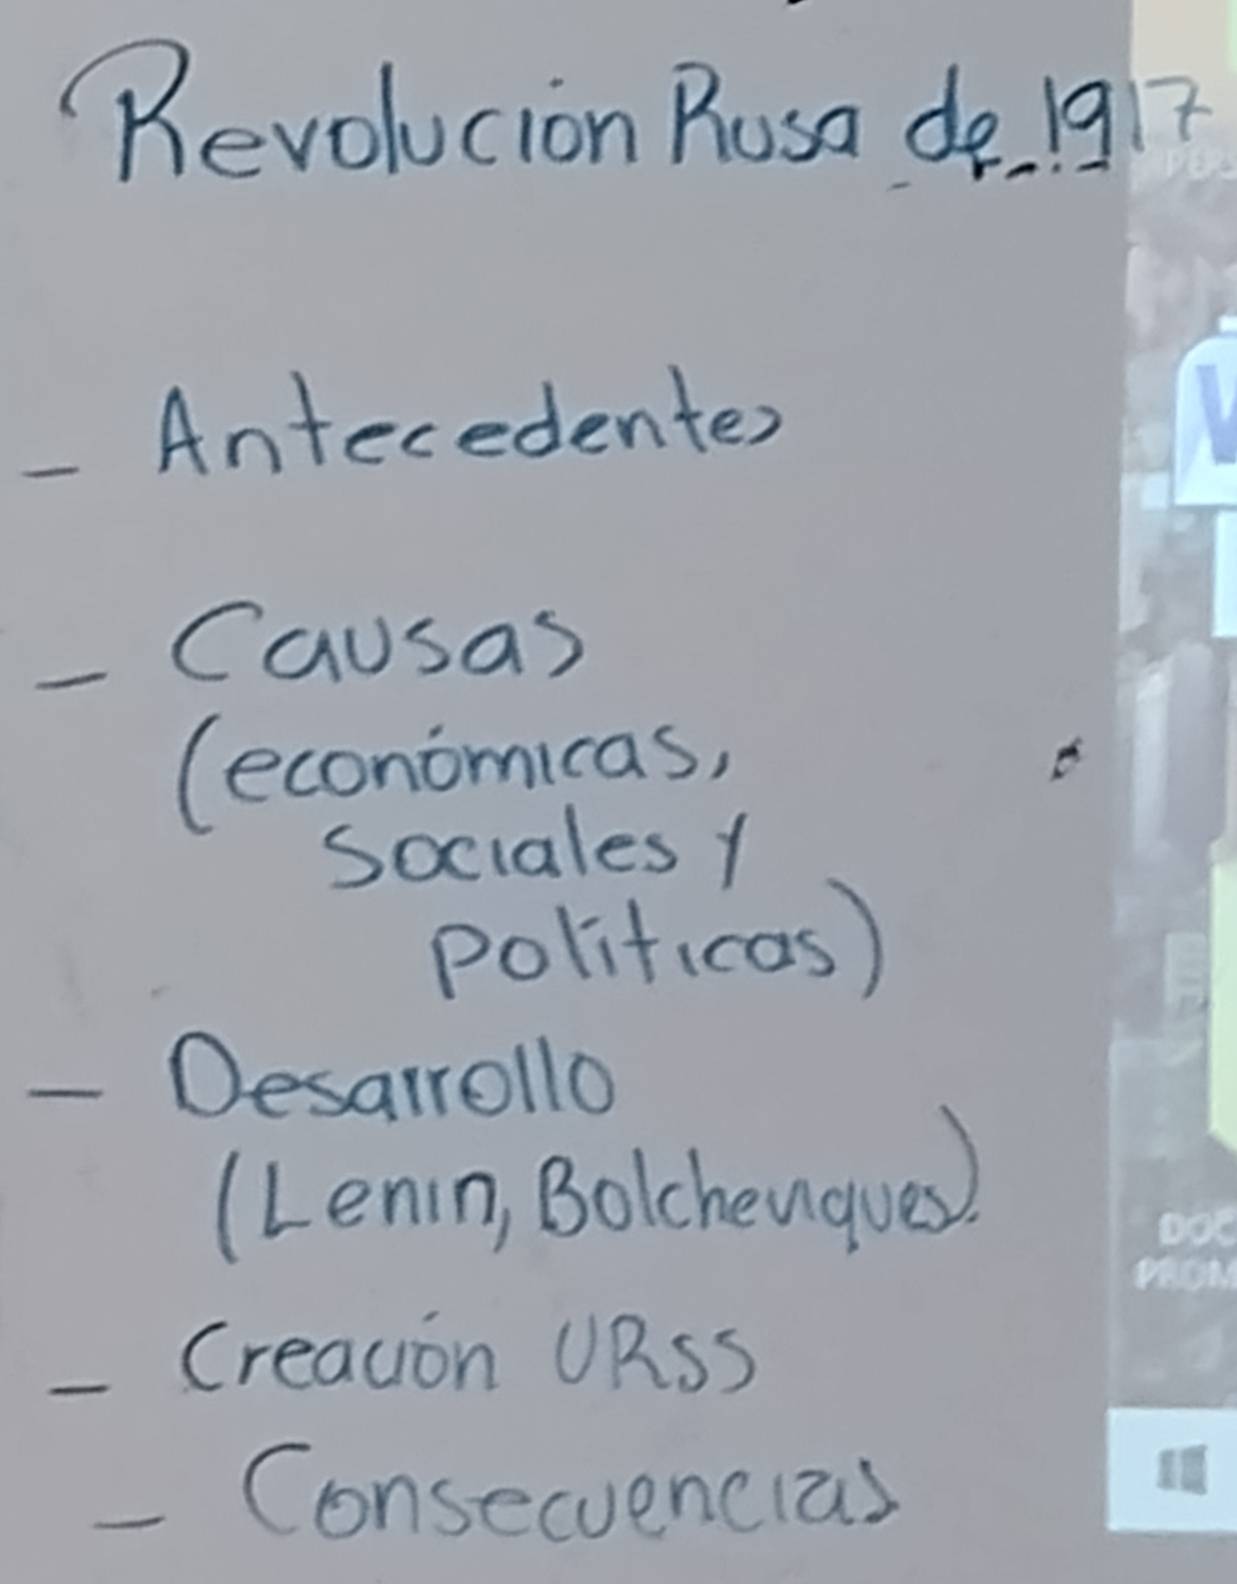 Revolución Rusa de 1917
- Antecedentes
- Causas
(económicas,
sociales y
políticas)
- Desarrollo
(Lenin, Bolcheviques).
- Creación URSS
- Consecuencias
DOC
PROM